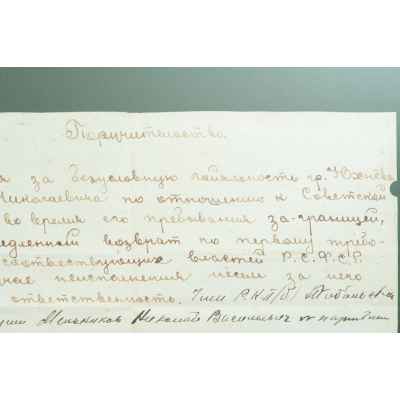 Поручительство.
я за безусловную лойяльность гр. Юхнева
Николаевича по отношению к Советской
во время его пребывания за-границей,
едленной возврат по первому требо-
соотвествующих властей Р.С.Ф.С.Р.
неисполнения несем за него
ответственность. Член Р.К.П.(б)
Мельников Николай Васильевич